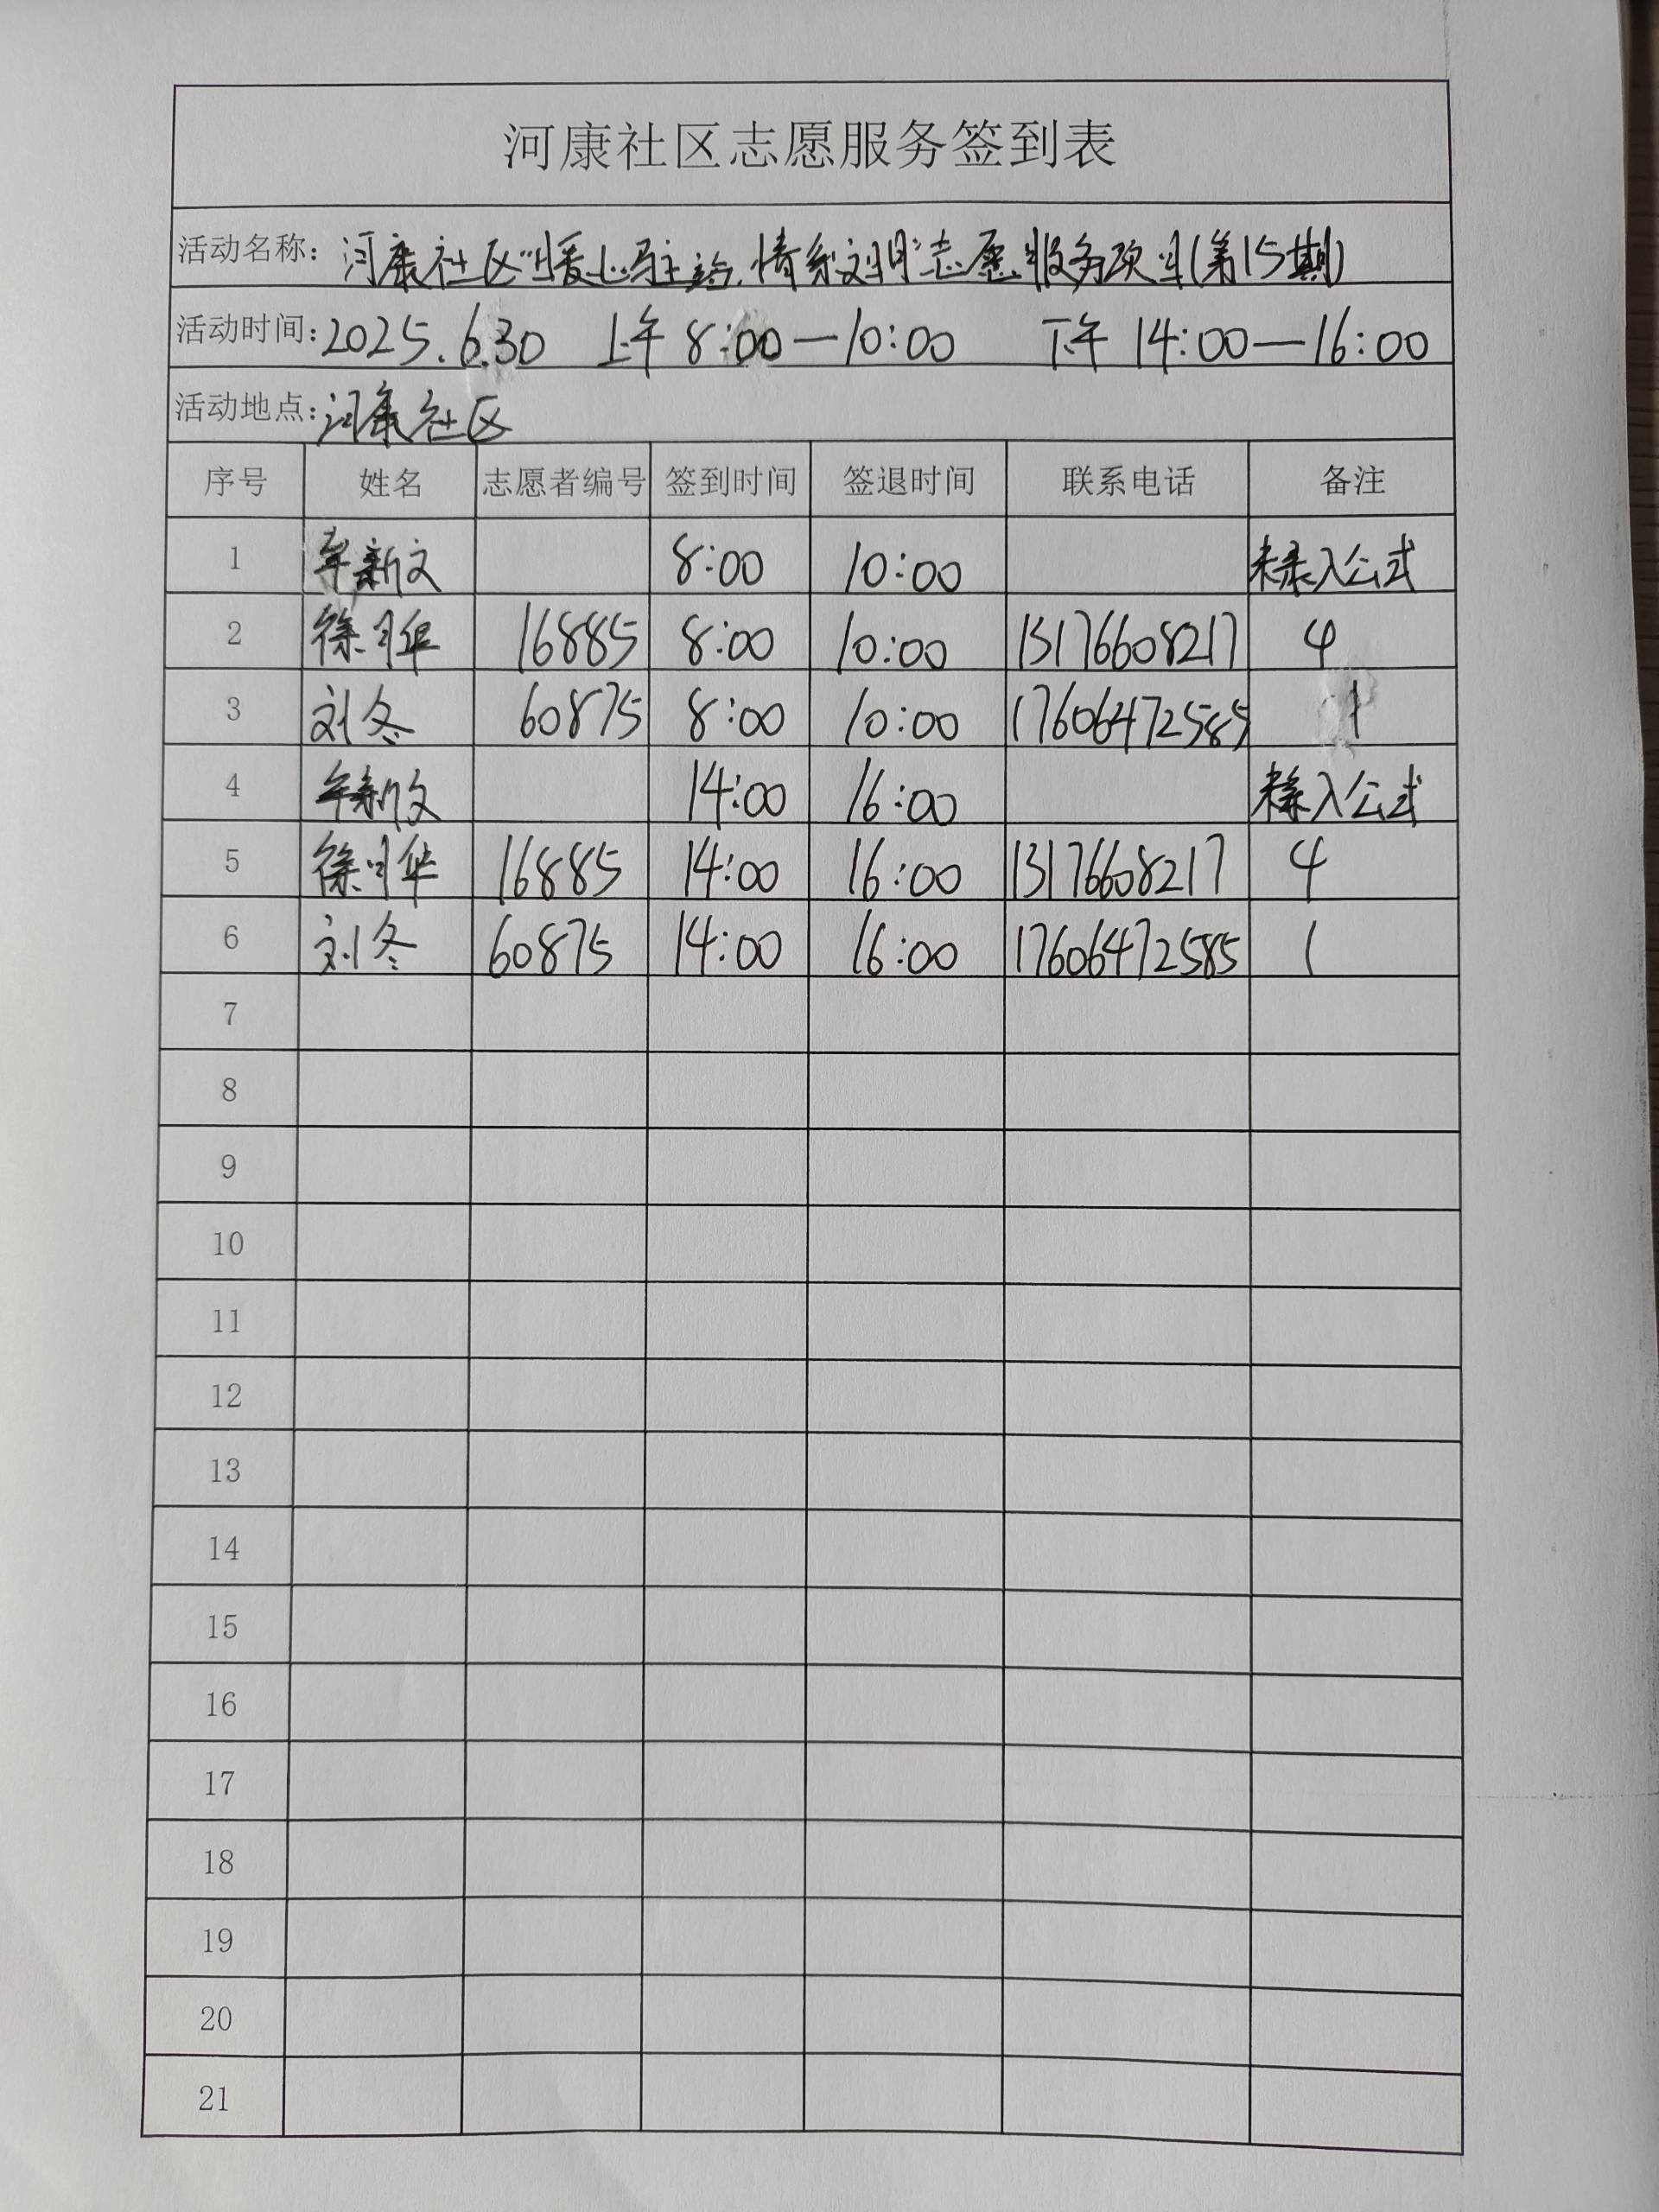 河康社区志愿服务签到表
活动名称：河康社区"暖心驻站.情系刘明"志愿服务项目(第15期)
活动时间：2025.6.30 上午 8:00—10:00 下午 14:00—16:00
活动地点：河康社区
序号 姓名 志愿者编号 签到时间 签退时间 联系电话 备注
1 新文 8:00 10:00 未录入公式
2 徐月华 16885 8:00 10:00 13176608217 4
3 刘冬 60875 8:00 10:00 17606472585 1
4 新文 14:00 16:00 未录入公式
5 徐月华 16885 14:00 16:00 13176608217 4
6 刘冬 60875 14:00 16:00 17606472585 1
7
8
9
10
11
12
13
14
15
16
17
18
19
20
21